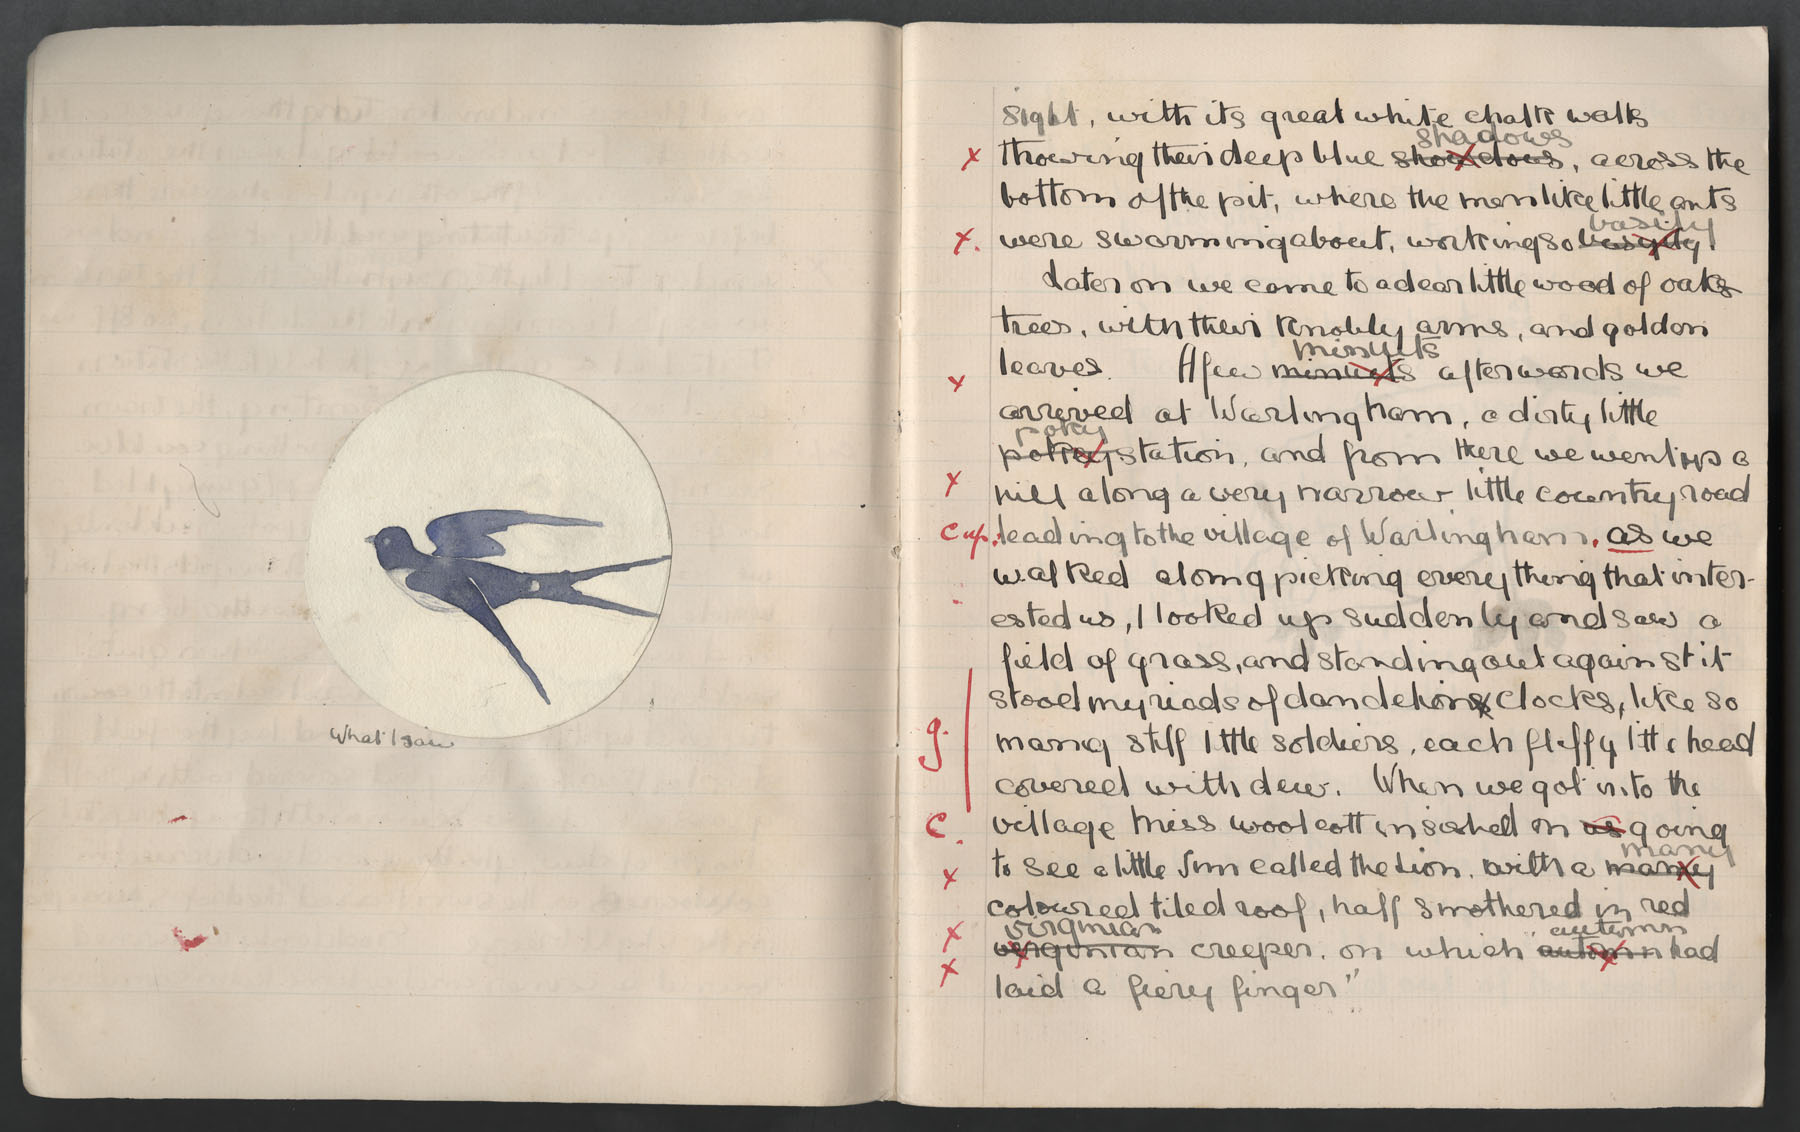 What I saw
sight, with its great white chalk walls
shadows
x throwing their deep blue shawdows, across the
bottom of the pit, where the men like little ants
basily
x. were swarming about, working so !
Later on we came to a dear little wood of oaks
trees, with their knobbly arms, and golden
leaves. A few minuets afterwards we
minyets
x
arrived at Warlingham, a dirty little
poky
station, and from there we went up a
x hill along a very narrow little country road
c up. leading to the village of Warlingham. as we
walked along picking every thing that inter-
ested us, I looked up suddenly and saw a
field of grass, and standing out against it
stood myriads of dandelions clocks, like so
g. many stiff little soldiers, each fluffy little head
covered with dew. When we got in to the
c. village Miss Woolcott insisted on us going
many
x to see a little Inn called the Lion. with a manty
coloured tiled roof, half smothered in red
virginian autumn
x verginian creeper. on which automn had
x laid a fiery finger"